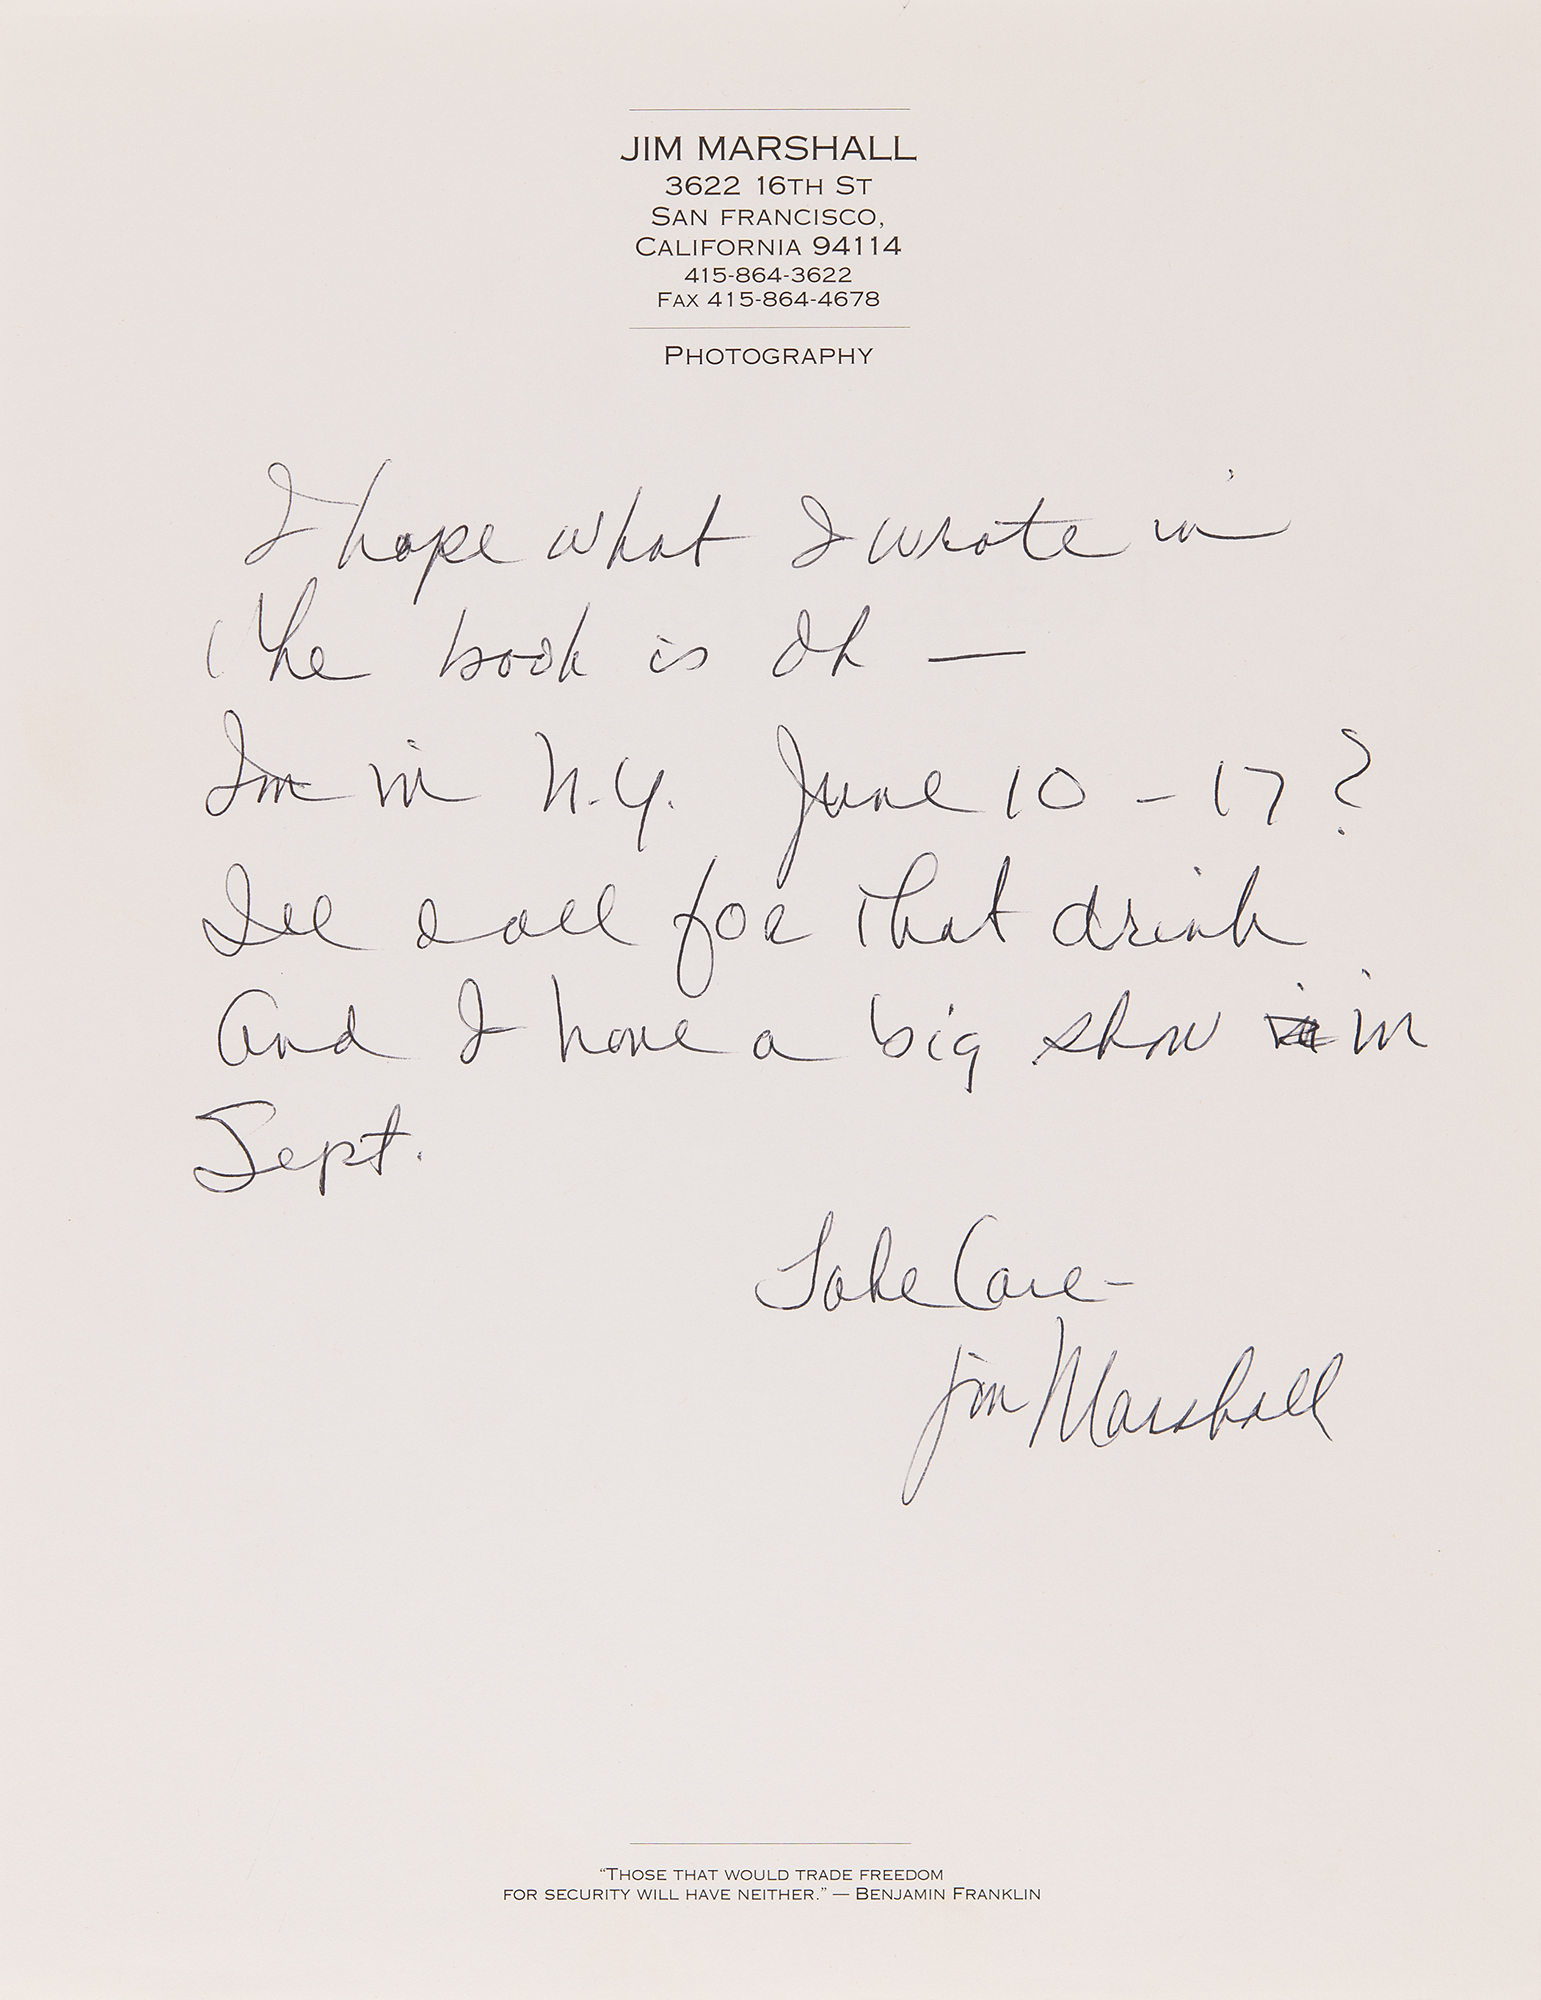 JIM MARSHALL
3622 16TH ST
SAN FRANCISCO,
CALIFORNIA 94114
415-864-3622
FAX 415-864-4678
PHOTOGRAPHY
I hope what I wrote in
the book is Ok —
Im in N.Y. June 10 - 17?
Ill call for that drink
And I have a big show in
Sept.
Take Care -
Jim Marshall
“THOSE THAT WOULD TRADE FREEDOM
FOR SECURITY WILL HAVE NEITHER.” — BENJAMIN FRANKLIN